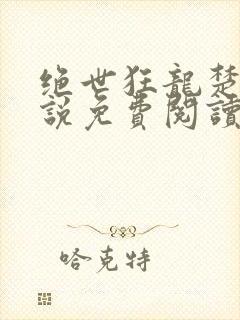 绝世狂龍楚
說免費閱讀
哈克特